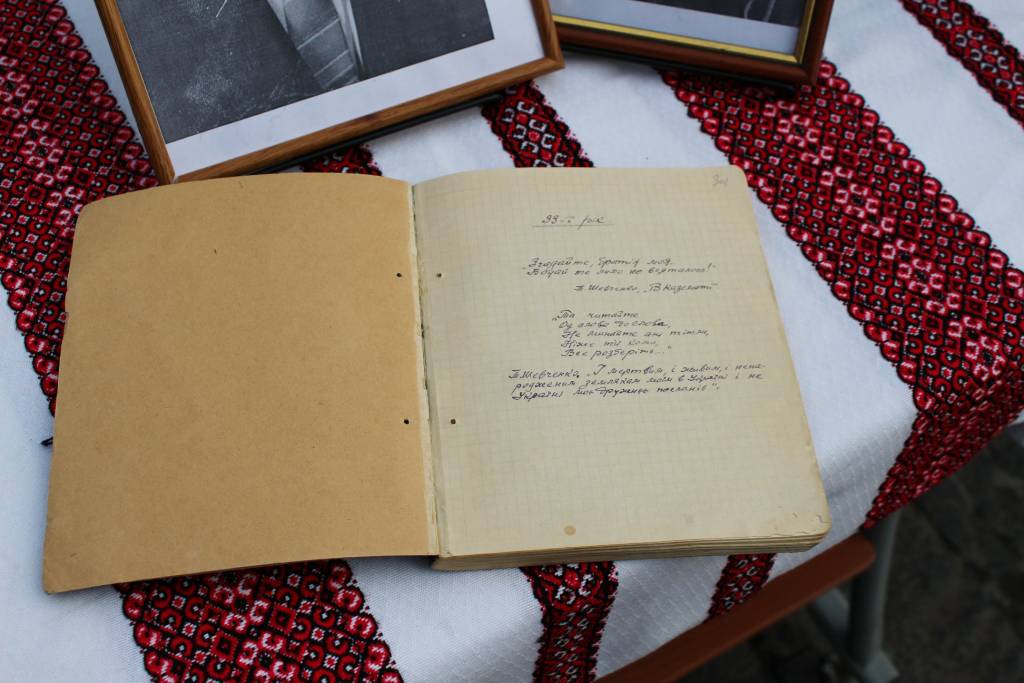 33-й рік
„Згадайте, братія моя.
Бодай те лихо не верталось!"
Т. Шевченко, „В казематі"
„Та читайте
Од слова до слова,
Не минайте ані титли,
Ніже тії коми,
Все розберіть..."
Т. Шевченко, „І мертвим, і живим, і нена-
родженим землякам моїм в Україні і не
Україні моє дружнєє посланіє".